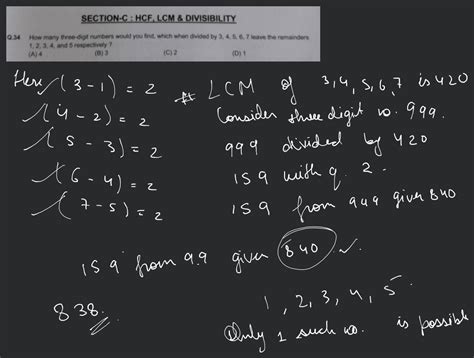 SECTION-C : HCF, LCM & DIVISIBILITY
Q.34 How many three-digit numbers would you find, which when divided by 3, 4, 5, 6, 7 leave the remainders
1, 2, 3, 4, and 5 respectively ?
(A) 4 (B) 3 (C) 2 (D) 1
Here (3-1) = 2
(4-2) = 2
(5-3) = 2
(6-4) = 2
(7-5) = 2
LCM of 3,4,5,6,7 is 420
Consider three digit no. 999.
999 divided by 420
159 with q. 2.
159 from 999 gives 840
159 from 99 gives 840
838
1, 2, 3, 4, 5.
Only 1 such no. is possible